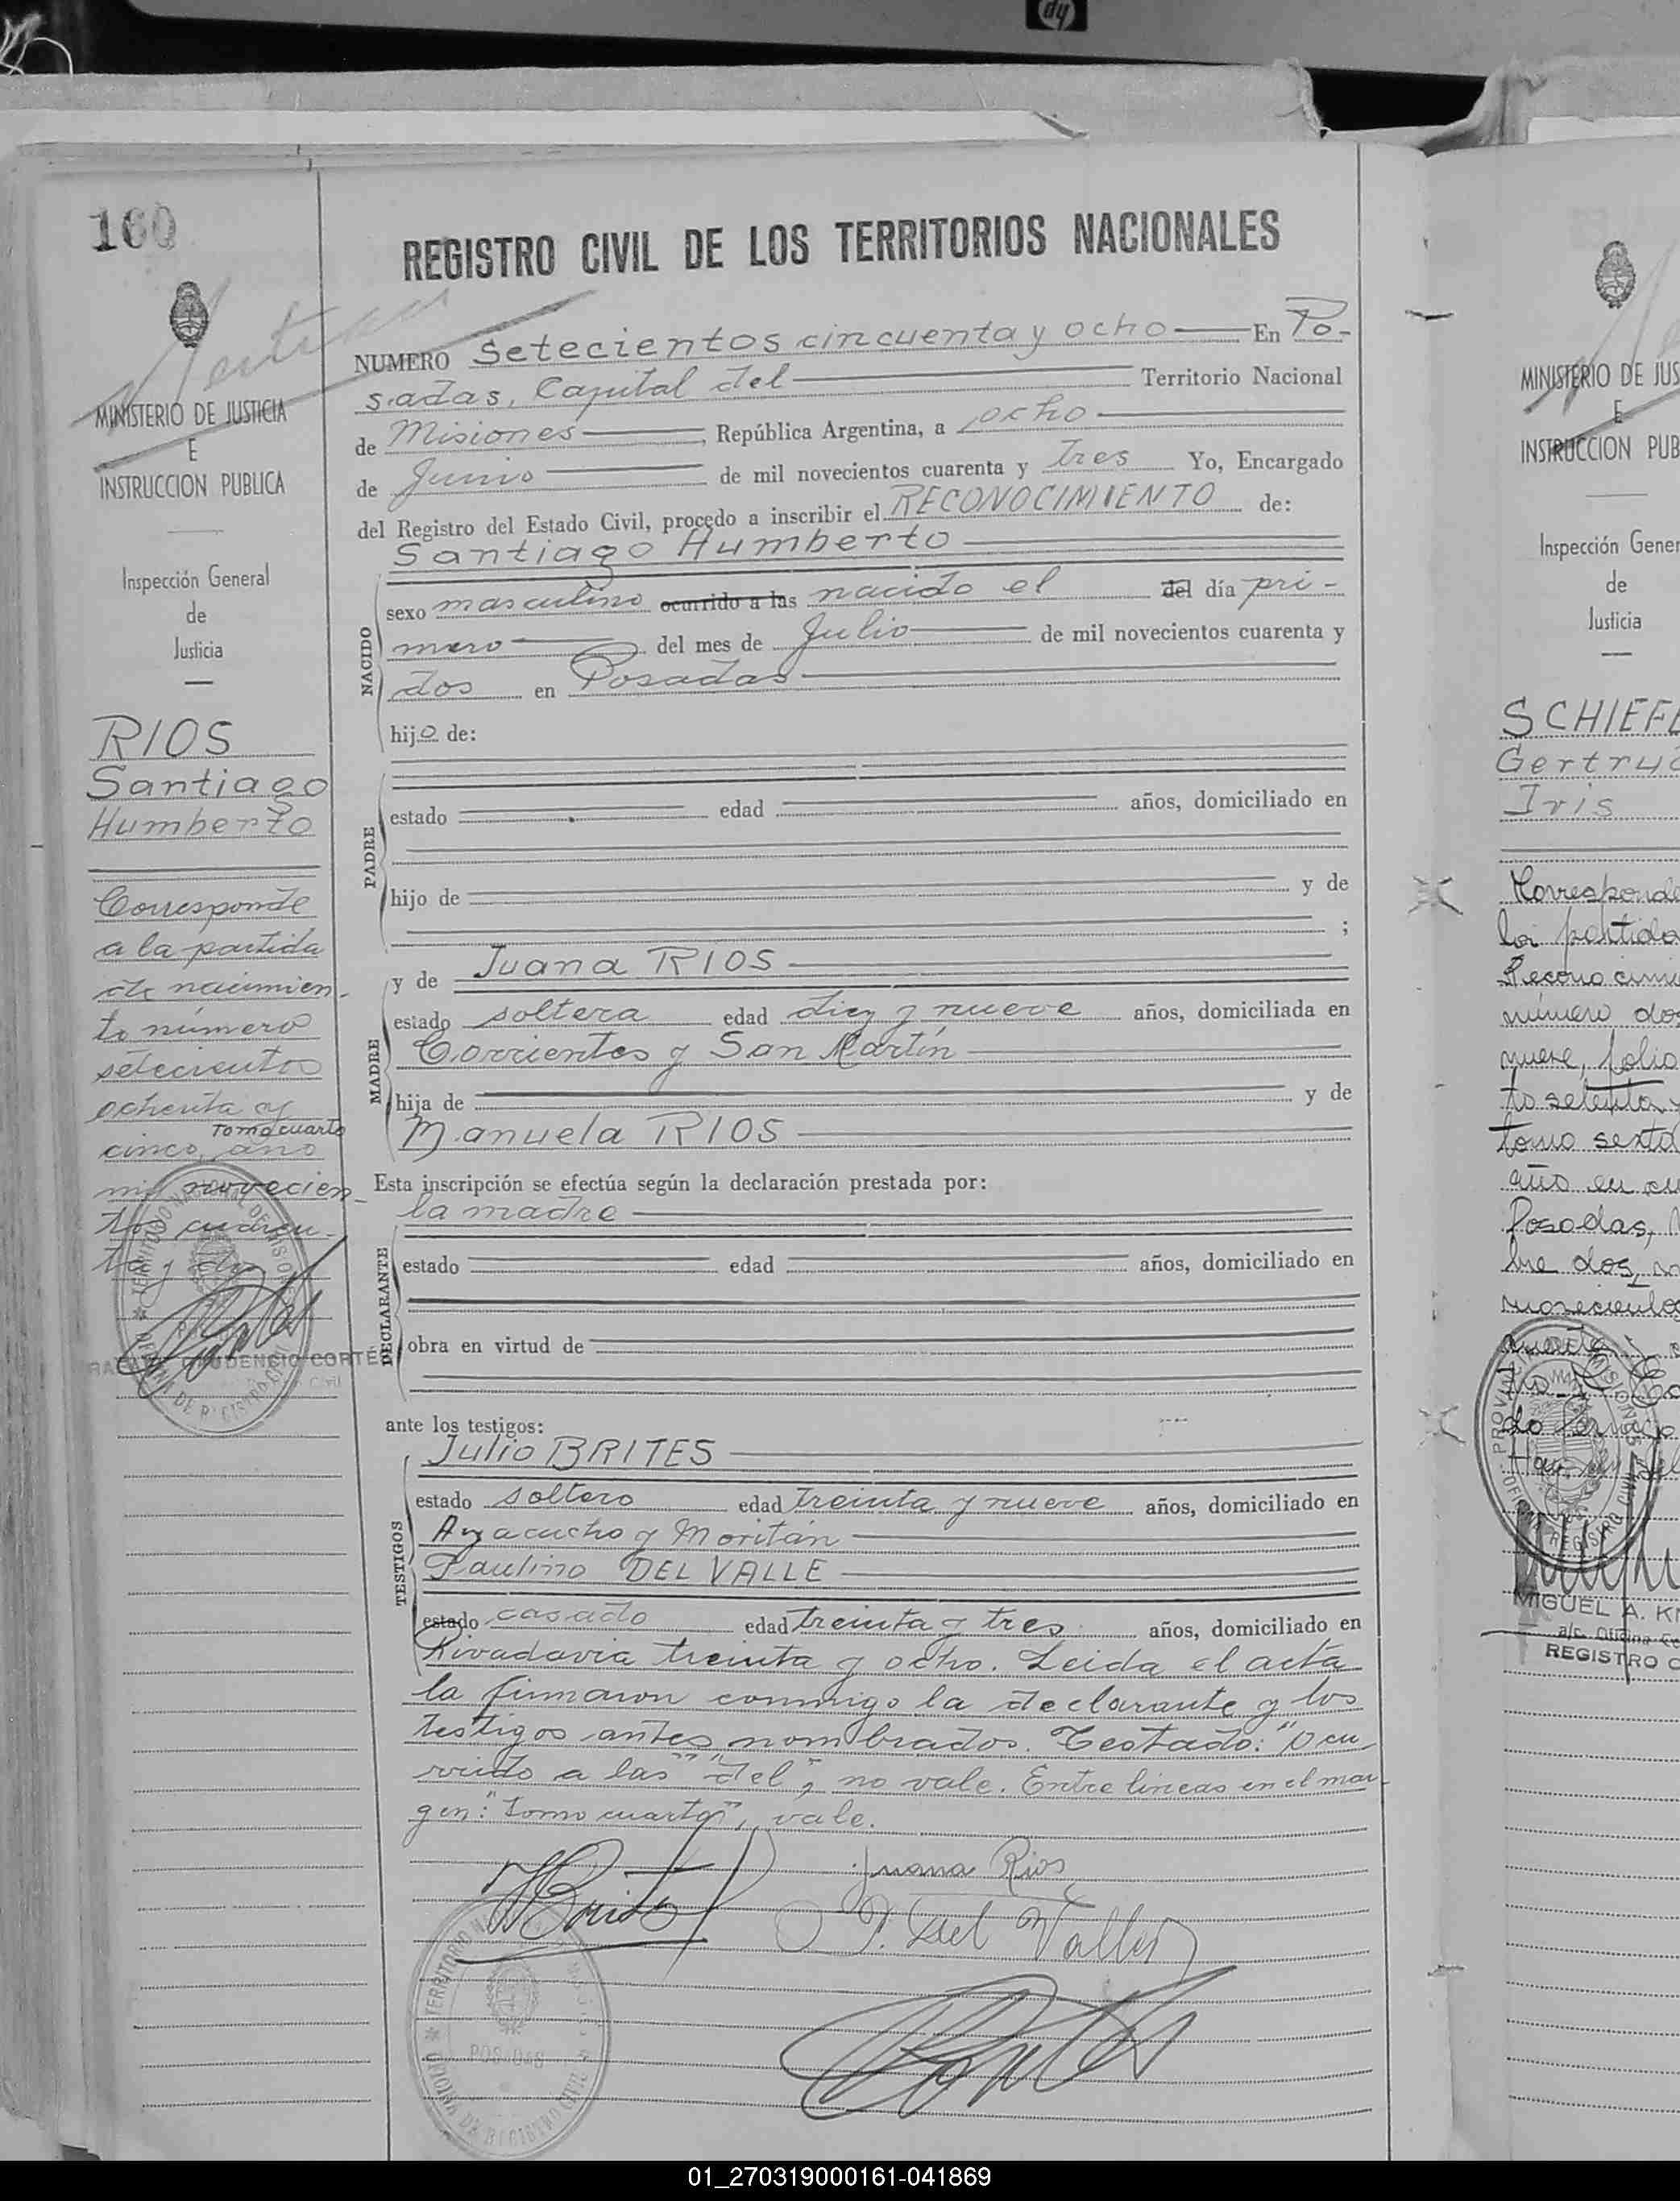 160
MINISTERIO DE JUSTICIA
E
INSTRUCCION PUBLICA
Inspección General
de
Justicia
RIOS
Santiago
Humberto
Corresponde
a la partida
de nacimien-
to número
setecientos
ochenta y
tomo cuarto
cinco, año
mil novecien-
tos cuaren-
ta y dos
REGISTRO CIVIL DE LOS TERRITORIOS NACIONALES
NUMERO Setecientos cincuenta y ocho En Po-
sadas, Capital del Territorio Nacional
de Misiones, República Argentina, a ocho
de Junio de mil novecientos cuarenta y tres Yo, Encargado
del Registro del Estado Civil, procedo a inscribir el RECONOCIMIENTO de:
Santiago Humberto
NACIDO
sexo masculino ocurrido a las nacido el del día pri-
mero del mes de Julio de mil novecientos cuarenta y
dos en Posadas
hijo de:
PADRE
estado edad años, domiciliado en
hijo de y de
;
MADRE
y de Juana RIOS
estado soltera edad diez y nueve años, domiciliada en
Corrientes y San Martín
hija de y de
Manuela RIOS
Esta inscripción se efectúa según la declaración prestada por:
la madre
DECLARANTE
estado edad años, domiciliado en
obra en virtud de
ante los testigos:
Julio BRITES
TESTIGOS
estado soltero edad treinta y nueve años, domiciliado en
Ayacucho y Moritán
Paulino DEL VALLE
estado casado edad treinta y tres años, domiciliado en
Rivadavia treinta y ocho. Leida el acta
la firmaron conmigo la declarante y los
testigos antes nombrados. Testado: "Ocu-
rrido a las" "del", no vale. Entre líneas en el mar-
gen: "tomo cuarto", vale.
Juana Rios
P. Del Valle
POSADAS
MINISTERIO DE JUS
E
INSTRUCCION PUB
Inspección Gener
de
Justicia
SCHIEFL
Gertru
Iris
Corresponde
la partida
Reconocimi
número dos
nueve, folio
to setenta y
tomo sexto
año en cu
Posadas,
bre dos,
novecientos
MIGUEL A. KR
REGISTRO C
01_270319000161-041869